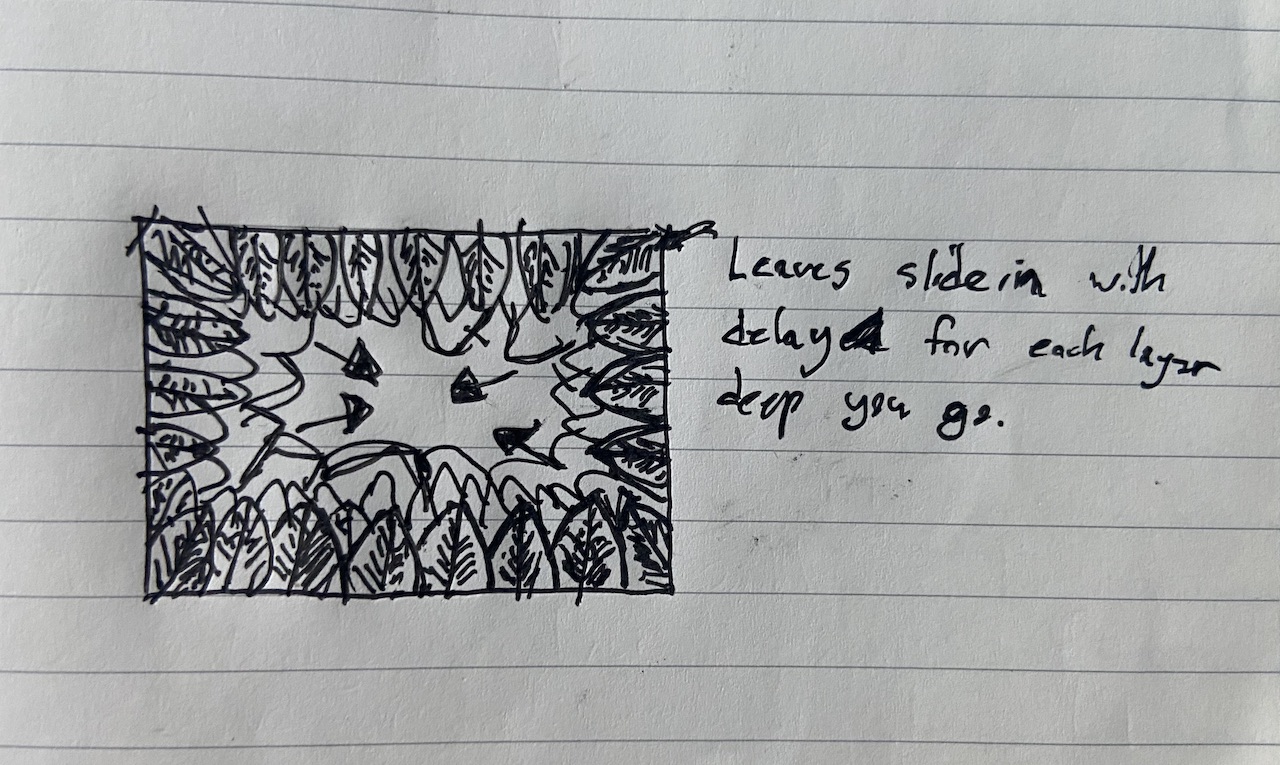 Leaves slide in with
delay for each layer
deep you go.